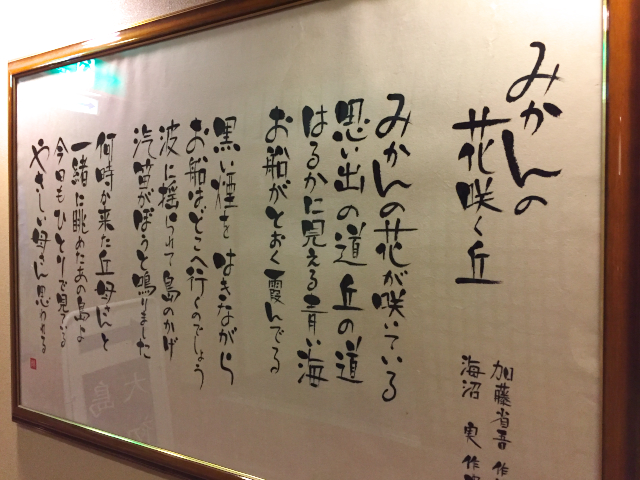 みかんの
花咲く丘
加藤省吾 作
海沼 実 作
みかんの花が咲いている
思い出の道 丘の道
はるかに見える青い海
お船がとおく霞んでる
黒い煙を はきながら
お船はどこへ行くのでしょう
波に揺られて島のかげ
汽笛がぼうと鳴りました
何時か来た丘 母さんと
一緒に眺めたあの島よ
今日もひとりで見ている
やさしい母さん思われる
大島